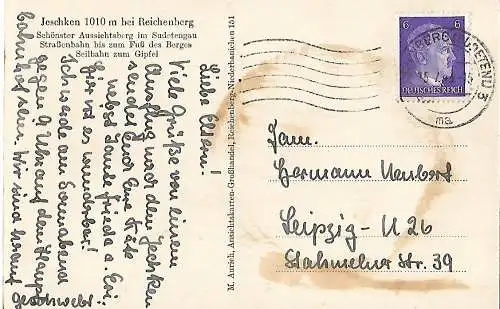 Jeschken 1010 m bei Reichenberg
Schönster Aussichtsberg im Sudetengau
Straßenbahn bis zum Fuß des Berges
Seilbahn zum Gipfel
Liebe Eltern!
Viele Grüße von einem
Ausflug nach dem Jeschken
sendet Euch Eure Käte
nebst Tante Frieda u. Evi
Hier ist es wunderbar!
Ich werde am Sonnabend
gegen 9 Uhr auf dem Haupt
bahnhof sein. Wir sind herauf
geschwebt.
M. Aurich, Ansichtskarten-Großhandel, Reichenberg-Niederhanichen 151
6 6
DEUTSCHES REICH
Fam.
Hermann Neubert
Leipzig-N 26
Stahmelner Str. 39